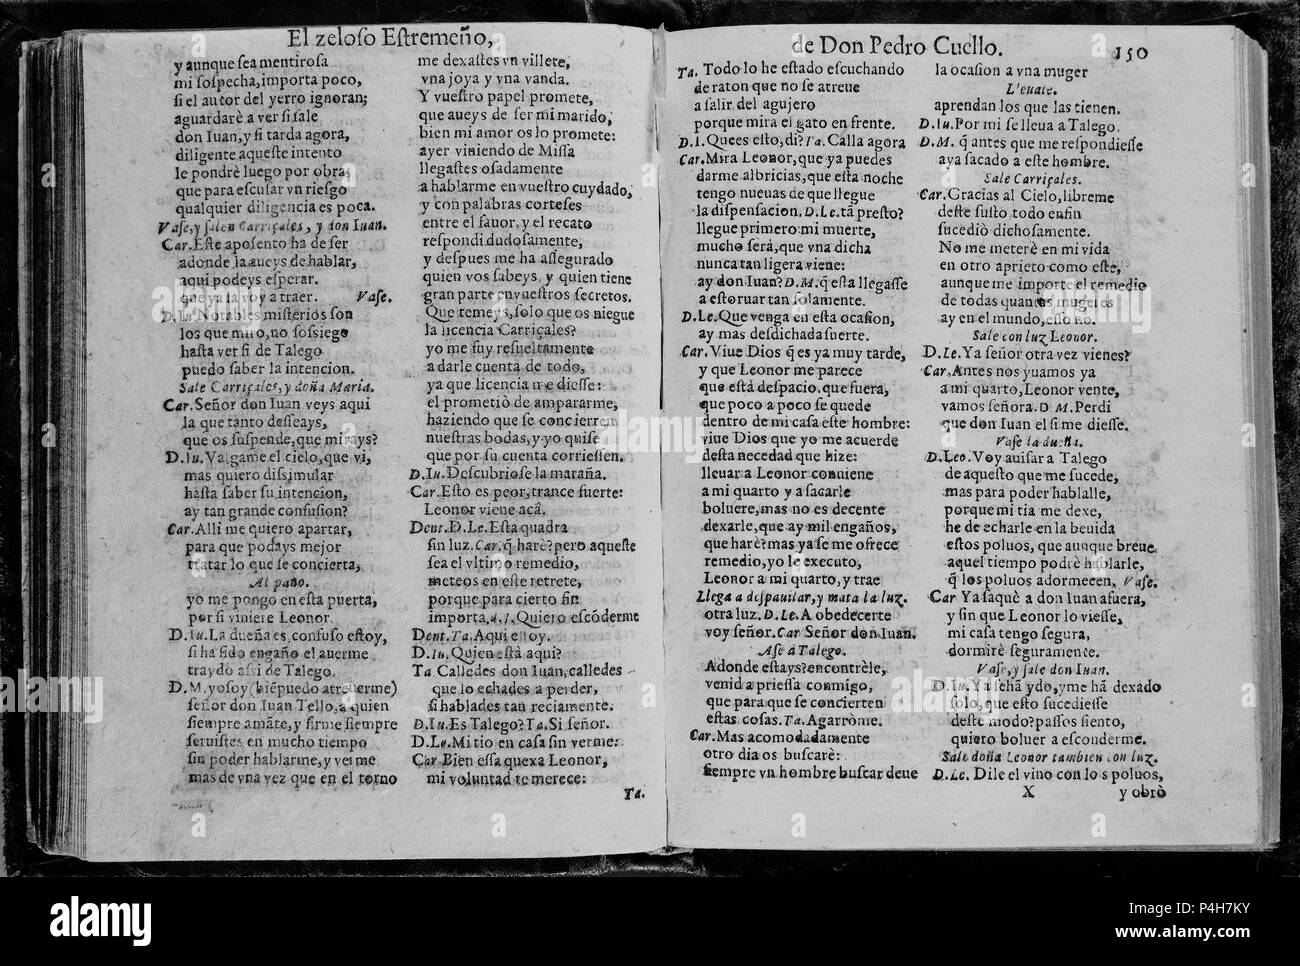 El zeloſo Eſtremeño,
y aunque ſea mentiroſa
mi ſoſpecha, importa poco,
ſi el autor del yerro ignoran;
aguardarè a ver ſi ſale
don Iuan, y ſi tarda agora,
diligente aqueſte intento
le pondrè luego por obra,
que para eſcuſar vn rieſgo
qualquier diligencia es poca.
Vaſe, y ſalen Carriçales, y don Iuan.
Car. Eſte apoſento ha de ſer
adonde la aueys de hablar,
aqui podeys eſperar.
que ya la voy a traer. Vaſe.
D. Iu. Notables miſterios ſon
los que miro, no ſoſsiego
haſta ver ſi de Talego
puedo ſaber la intencion.
Sale Carriçales, y doña Maria.
Car. Señor don Iuan veys aqui
la que tanto deſſeays,
que os ſuſpende, que mirays?
D. Iu. Valgame el cielo, que vi,
mas quiero diſsimular
haſta ſaber ſu intencion,
ay tan grande confuſion?
Car. Alli me quiero apartar,
para que podays mejor
tratar lo que ſe concierta,
Al paño.
yo me pongo en eſta puerta,
por ſi viniere Leonor.
D. Iu. La dueña es, confuſo eſtoy,
ſi ha ſido engaño el auerme
traydo aſsi de Talego.
D. M. yo ſoy (biē puedo atreuerme)
ſeñor don Iuan Tello, a quien
ſiempre amāte, y firme ſiempre
ſeruiſtes en mucho tiempo
ſin poder hablarme, y verme
mas de vna vez que en el torno
me dexaſtes vn villete,
vna joya y vna vanda.
Y vueſtro papel promete,
que aueys de ſer mi marido,
bien mi amor os lo promete:
ayer viniendo de Miſſa
llegaſtes oſadamente
a hablarme en vueſtro cuydado,
y con palabras corteſes
entre el fauor, y el recato
reſpondi dudoſamente,
y deſpues me ha aſſegurado
quien vos ſabeys, y quien tiene
gran parte en vueſtros ſecretos.
Que temeys, ſolo que os niegue
la licencia Carriçales?
yo me fuy reſueltamente
a darle cuenta de todo,
ya que licencia me dieſſe:
el prometiò de ampararme,
haziendo que ſe concierren
nueſtras bodas, y yo quiſe
que por ſu cuenta corrieſſen.
D. Iu. Deſcubrioſe la maraña.
Car. Eſto es peor, trance fuerte:
Leonor viene acà.
Dent. D. Le. Eſta quadra
ſin luz. Car. q̃ harè? pero aqueſte
ſea el vltimo remedio,
meteos en eſte retrete,
porque para cierto fin
importa. d. I. Quiero eſcóderme
Dent. Ta. Aqui eſtoy.
D. Iu. Quien eſtà aqui?
Ta Calledes don Iuan, calledes
que lo echades a perder,
ſi hablades tan reciamente.
D. Iu. Es Talego? Ta. Si ſeñor.
D. Le. Mi tio en caſa ſin verme:
Car Bien eſſa quexa Leonor,
mi voluntad te merece:
Ta.
de Don Pedro Cuello. 150
Ta. Todo lo he eſtado eſcuchando
de raton que no ſe atreue
a ſalir del agujero
porque mira el gato en frente.
D. I. Ques eſto, di? Ta. Calla agora
Car. Mira Leonor, que ya puedes
darme albricias, que eſta noche
tengo nueuas de que llegue
la diſpenſacion. D. Le. tā preſto?
llegue primero mi muerte,
mucho ſerà, que vna dicha
nunca tan ligera viene:
ay don Iuan? D. M. q̃ eſta llegaſſe
a eſtoruar tan ſolamente.
D. Le. Que venga en eſta ocaſion,
ay mas deſdichada ſuerte.
Car. Viue Dios q̃ es ya muy tarde,
y que Leonor me parece
que eſtà deſpacio, que fuera,
que poco a poco ſe quede
dentro de mi caſa eſte hombre:
viue Dios que yo me acuerde
deſta necedad que hize:
lleuar a Leonor conuiene
a mi quarto y a ſacarle
boluere, mas no es decente
dexarle, que ay mil engaños,
que harè? mas ya ſe me ofrece
remedio, yo le executo,
Leonor a mi quarto, y trae
Llega a deſpauilar, y mata la luz.
otra luz. D. Le. A obedecerte
voy ſeñor. Car Señor don Iuan.
Aſe a Talego.
Adonde eſtays? encontrèle,
venid a prieſſa conmigo,
que para que ſe concierten
eſtas coſas. Ta. Agarròme.
Car. Mas acomodadamente
otro dia os buſcarè:
ſiempre vn hombre buſcar deue
la ocaſion a vna muger
Lleuale.
aprendan los que las tienen.
D. Iu. Por mi ſe lleua a Talego.
D. M. q̃ antes que me reſpondieſſe
aya ſacado a eſte hombre.
Sale Carriçales.
Car. Gracias al Cielo, libreme
deſte ſuſto todo en fin
ſucediò dichoſamente.
No me meterè en mi vida
en otro aprieto como eſte,
aunque me importe el remedio
de todas quantas mugeres
ay en el mundo, eſſo no.
Sale con luz Leonor.
D. Le. Ya ſeñor otra vez vienes?
Car. Antes nos yuamos ya
a mi quarto, Leonor vente,
vamos ſeñora. D M. Perdi
que don Iuan el ſi me dieſſe.
Vaſe la dueña.
D. Leo. Voy auiſar a Talego
de aqueſto que me ſucede,
mas para poder hablalle,
porque mi tia me dexe,
he de echarle en la beuida
eſtos poluos, que aunque breue
aquel tiempo podrè hablarle,
q̃ los poluos adormecen, Vaſe.
Car Ya ſaquè a don Iuan afuera,
y ſin que Leonor lo vieſſe,
mi caſa tengo ſegura,
dormirè ſeguramente.
Vaſe, y ſale don Iuan.
D. Iu. Ya ſe hā ydo, y me hā dexado
ſolo, que eſto ſucedieſſe
deſte modo? paſſos ſiento,
quiero boluer a eſconderme.
Sale doña Leonor tambien con luz.
D. Le. Dile el vino con los poluos,
X y obrò
alamy stock photo
alamy
Image ID: P4H7KY
www.alamy.com